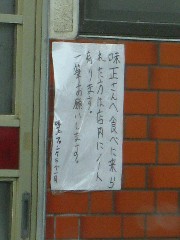 味正さんへ食べに来ら
れた方は店内にノート
あります。
一筆お願いします。